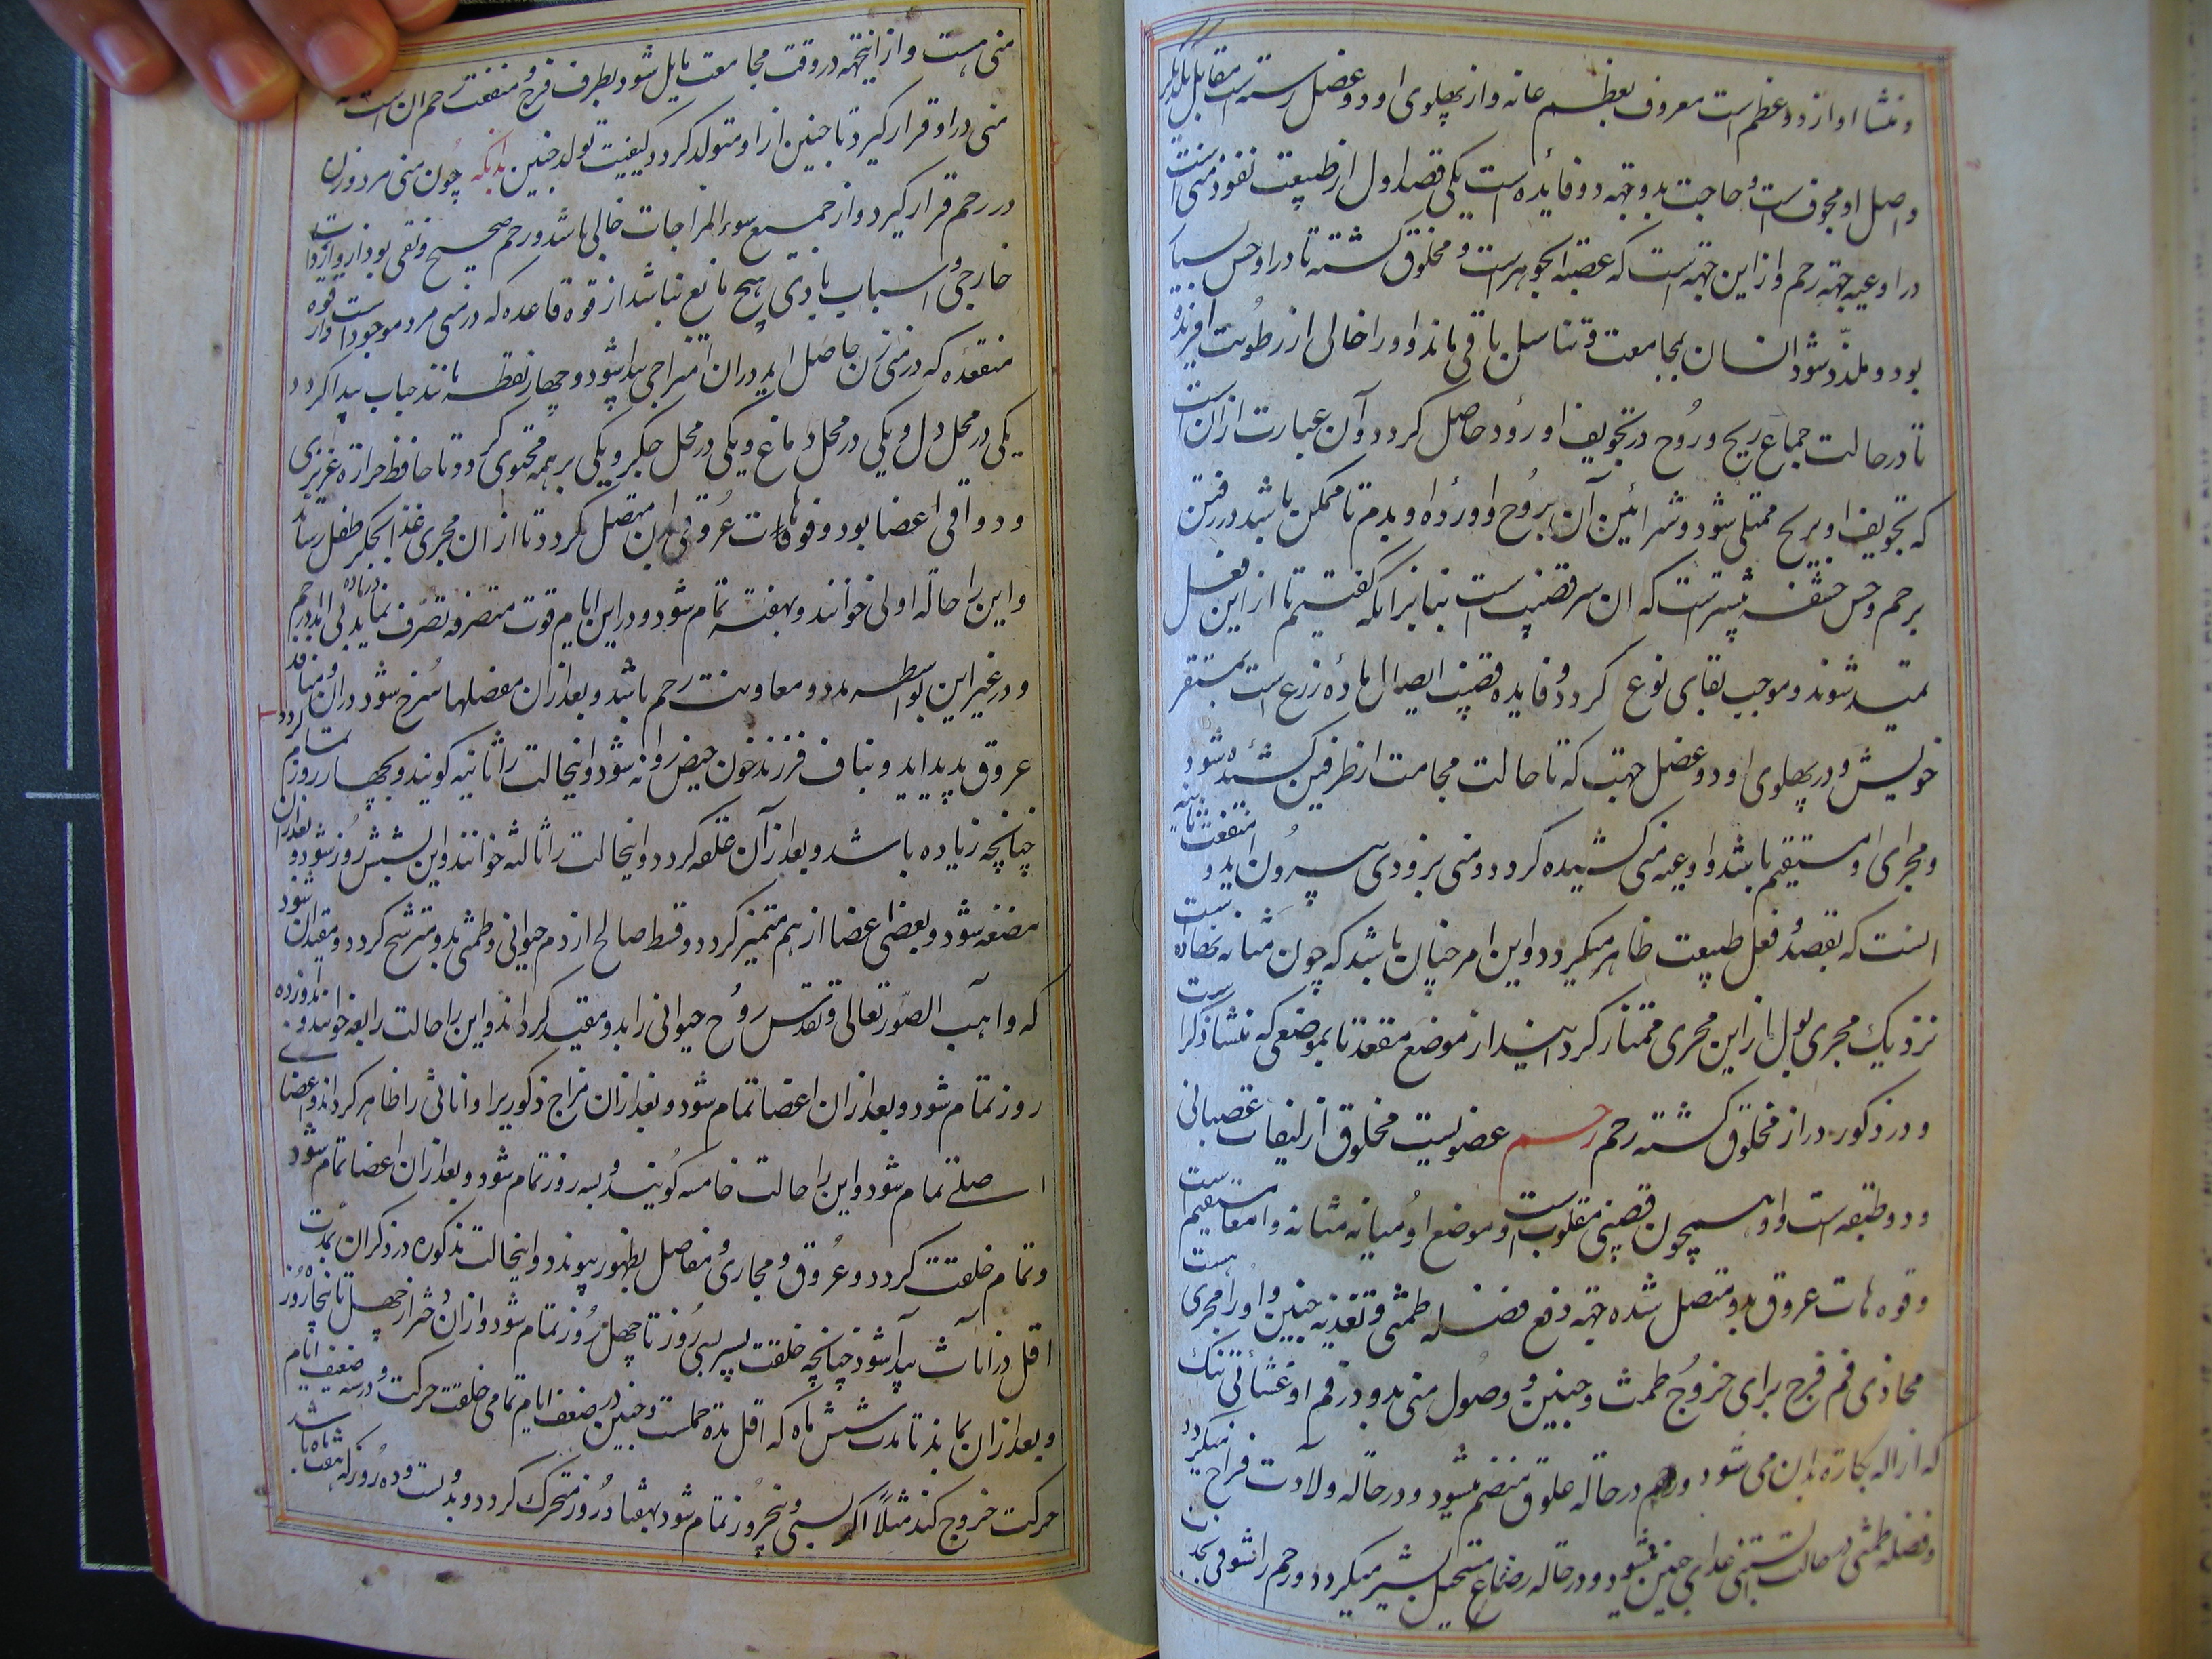 و منشا او از دو عظم است معروف بعظم عانه و از پهلوی او دو عضل رسته است مقابل یکدیگر
و اصل او مجوف است و حاجت بدو جهة دو فائده است یکی قصد اول از طبیعت نفوذ منی است
در اوعیه جهة رحم و از این جهة است که عصبة الجوهر است و مخلوق کشته تا در او حس بسیار
بود و ملذذ شود انسان بمجامعت و تناسل باقی ماند و او را خالی از رطوبت افریده
تا در حالت جماع ریح و روح در تجویف او رود حاصل کردد و آن عبارت از ان است
که تجویف او بریح ممتلی شود و شرائین آن بروح و اورده او بدم تا ممکن باشد در رفتن
برحم و حس حشفه بیشتر است که ان سر قضیب است بنا بر انکه کفتیم تا از این فعل
شوند و موجب بقای نوع کردد و فایده قضیب ایصال ماده زرع است بمستقر
خویش و در پهلوی او دو عضل جهت که تا حالت مجامعت از طرفین کشیده شود
و مجرای او مستقیم باشد و اوعیه منی کشیده کردد و منی بزودی بیرون اید و منفعت ثانیه
انست که بقصد و فعل طبیعت ظاهر میکردد و این امر چنان باشد که چون مثانه نهاده
نزدیک مجری بول از این مجری ممتاز کردانید از موضع مقعد تا بموضعی که منشا ذکر است
و در ذکور دراز مخلوق کشته رحم رحم عضویست مخلوق از لیفات عصبانی
و دو طبقه است و او همچون قضیبی مقلوب است و موضع او میانه مثانه و امعا مستقیم است
و فوهات عروق بدو متصل شده جهة دفع فضله طمثی و تغذیه جنین و او را مجری هست
محاذی فم فرج برای خروج طمث و جنین و وصول منی بدو و در فم او غشائی تنک
که ازاله بکارة بدان می شود و رحم در حالة علوق منضم میشود و در حالة ولادت فراخ میکردد
و فضله طمثی در حالت ابستنی غذای جنین میشود و در حاله رضاع مستحیل بشیر میکردد و رحم را شوقی بجذب
منی هست و از اینجهة در وقت مجامعت مایل شود بطرف فرج و منفعت رحم ان است که
منی در او قرار کیرد تا جنین از او متولد کردد کیفیت تولد جنین بدانکه چون منی مرد و زن
در رحم قرار کیرد و از جمیع سوء المزاجات خالی باشد و رحم صحیح و نقی بود از واردات
خارجی و اسباب بادی هیچ مانع نباشد از قوه قاعده که در منی مرد موجود است و از قوه
منعقده که در منی زن حاصل اید در ان امتزاجی پیدا شود و چهار نقطه مانند حباب پیدا کردد
یکی در محل دل و یکی در محل دماغ و یکی در محل جکر و یکی بر همه محتوی کردد تا حافظ حرارة غریزی
و واقی اعضا بود و فوهات عروق بدان متصل کردد تا از ان مجری غذا بجکر طفل رساند
و این را حالة اولی خوانند و بهفته تمام شود و در این ایام قوت متصرفه تصرف نماید در ماده بی
و در غیر این بواسطه مدد و معاونت رحم باشد و بعد از ان مفصلها سرخ شود و در ان منافذ
عروق پدید اید و بناف فرزند خون حیض روانه شود و اینحالت را ثانیه کویند و بچهار روز تمام کردد
چنانچه زیاده باشد و بعد از آن علقه کردد و اینحالت را ثالثه خوانند و این بشش روز شود و بعد از ان
مضغه شود و بعضی اعضا از هم متمیز کردد و قسط صالح از دم حیوانی و طمثی بدو مترشح کردد و مقید ان شود
که واهب الصور تعالی و تقدس روح حیوانی را بدو مقید کرداند و این را حالت رابعه خوانند و
روز تمام شود و بعد از ان اعضا تمام شود و بعد از ان مزاج ذکوریرا و اناثی را ظاهر کرداند و اعضا
اصلی تمام شود و این را حالت خامسه کویند و بسه روز تمام شود و بعد از ان اعضا تمام شود
و تمام خلقت کردد و عروق و مجاری و مفاصل بظهور پیوندد و اینحالت مذکوره در ذکران بمدت
اقل در اناث پیدا شود چنانچه خلقت پسر بسی روز تا چهل روز تمام شود و از ان دختر از چهل تا پنجاه روز
و بعد از ان بماند تا مدت شش ماه که اقل مدة حملست و جنین در ضعف ایام تمامی خلقت حرکت و در سه ضعف ایام
حرکت خروج کند مثلاً اکر بسی و پنجروز تمام شود بهفتاد روز متحرک کردد و بدویست و ده روز که هفت ماه باشد